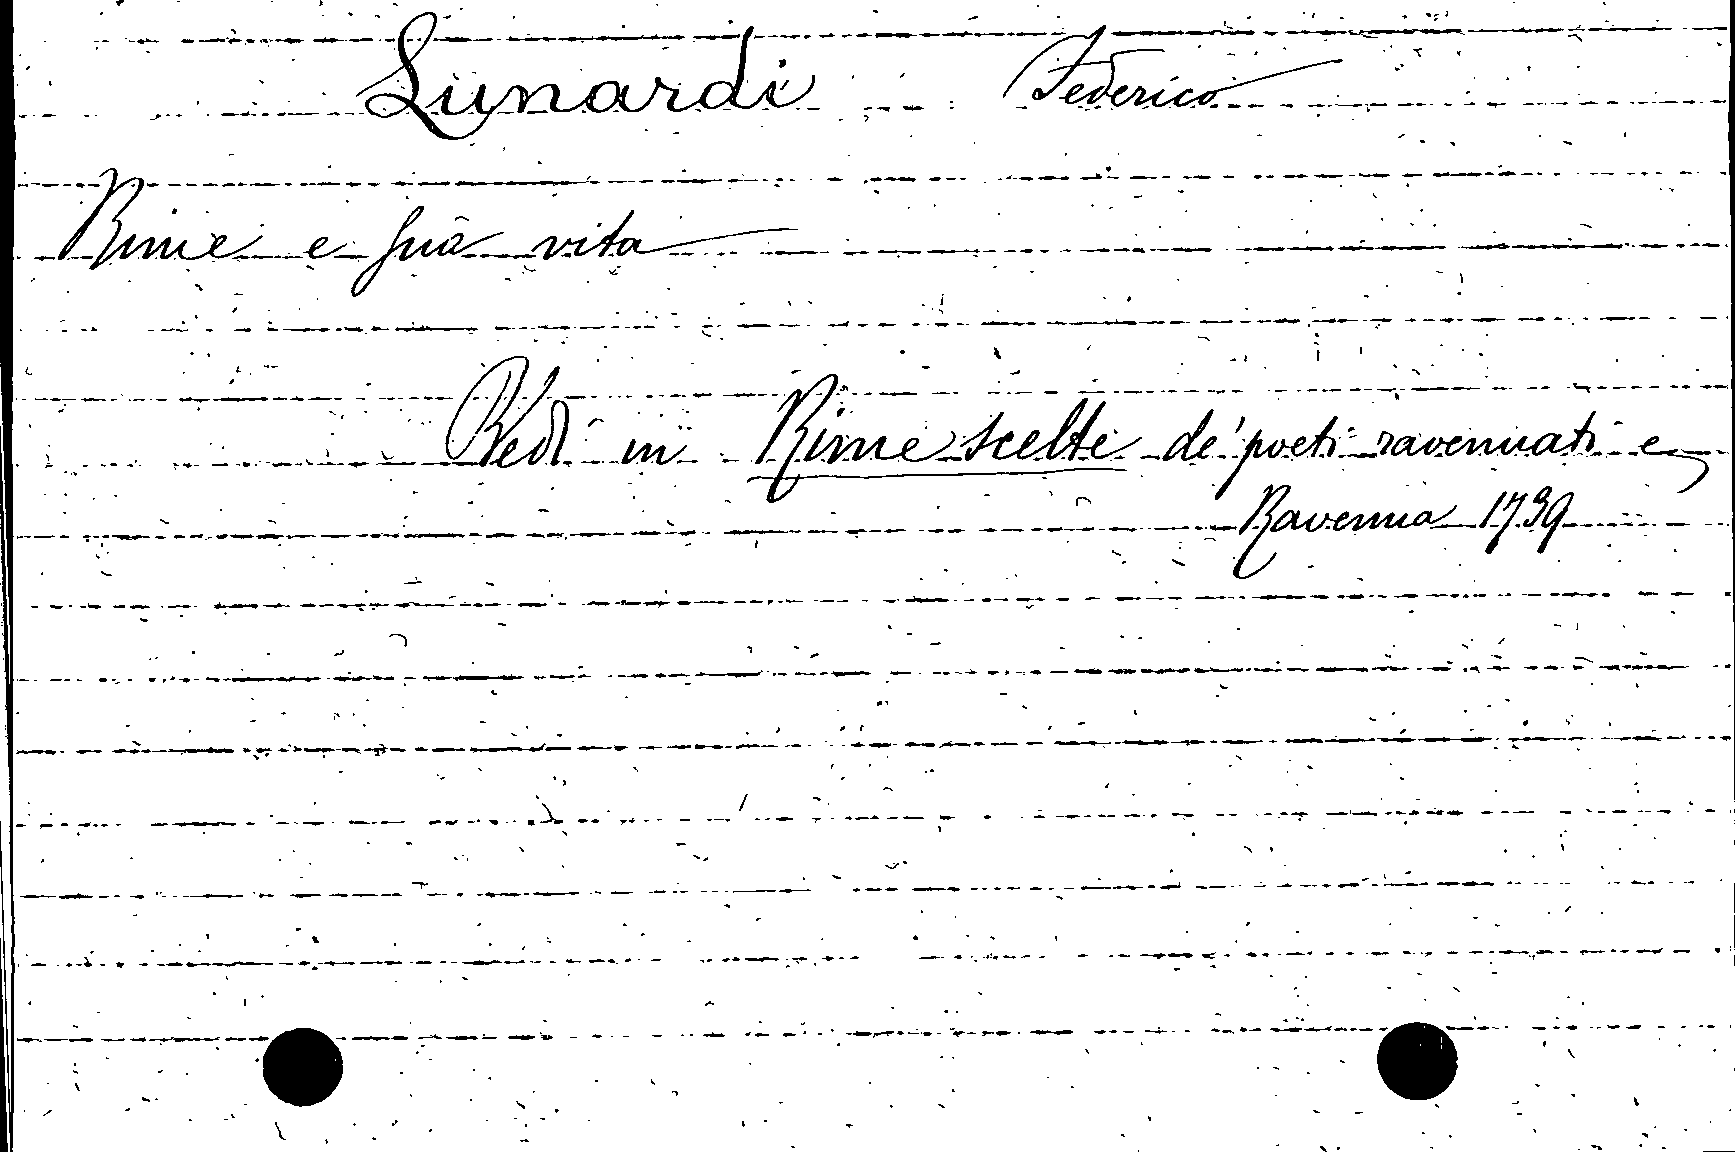 Lunardi Federico
Rime e sua vita
Vedi in Rime scelte de' poeti ravennati e
Ravenna 1739